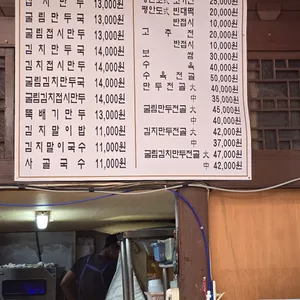 접시만두 13,000원
굴림만두국 13,000원
굴림접시만두 13,000원
김치만두국 14,000원
김치접시만두 14,000원
굴림김치만두국 14,000원
굴림김치접시만두 14,000원
뚝배기만두 13,000원
김치말이밥 11,000원
김치말이국수 11,000원
사골국수 11,000원
25,000원
평안도식 빈대떡 20,000원
반접시 10,000원
고추전 20,000원
반접시 10,000원
보쌈 30,000원
수육 40,000원
수육전골 50,000원
만두전골 大 40,000원
中 35,000원
굴림만두전골 大 45,000원
中 40,000원
김치만두전골 大 42,000원
中 37,000원
굴림김치만두전골 大 47,000원
中 42,000원